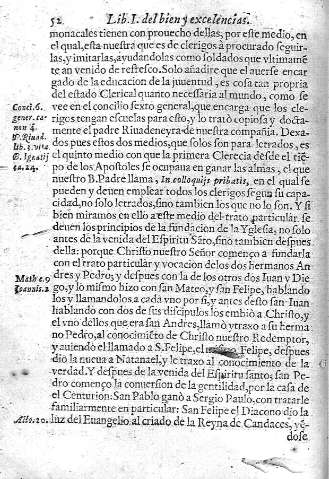 52 Lib. I. del bien y excelencias.
monacales tienen con prouecho dellas, por este medio, en
el qual, esta nuestra que es de clerigos à procurado seguir-
las, y imitarlas, ayudandolas como soldados que vltimamẽ
te an venido de refresco. Solo añadire que el auerse encar
gado de la educacion de la juventud, es cosa tan propria
del estado Clerical quanto necessaria al mundo, como se
vee en el concilio sexto general, que encarga que los cle-
rigos tengan escuelas para esto, y lo trató copiosa y docta
mente el padre Riuadeneyra de nuestra compañia. Dexa-
dos pues estos dos medios, que solos son para letrados, es
el quinto medio con que la primera Clerecia desde el tiẽ-
po de los Apostoles se ocupaua en ganar las almas, el que
nuestro B. Padre llama, In colloquijs priuatis, en el qual se
pueden y deuen emplear todos los clerigos segun su capa-
cidad, no solo letrados, sino tambien los que no lo son. Y si
bien miramos en ello a este medio del trato particular se
deuen los principios de la fundacion de la Yglesia, no solo
antes de la venida del Espiritu Sãto, sino tambien despues
della: porque Christo nuestro Señor començo a fundarla
con el trato particular y vocacion de los dos hermanos An
dres y Pedro; y despues con la de los otros dos Iuan y Die
go, y lo mismo hizo con san Mateo, y san Felipe, hablando
los y llamandolos a cada vno por si, y antes desto san Iuan
hablando con dos de sus discipulos los embiò a Christo, y
el vno dellos que era san Andres, llamò y traxo a su herma
no Pedro, al conocimiẽto de Christo nuestro Redemptor,
y autendo el llamado a S. Felipe, el Felipe, despues
dio la nueua a Natanael, y le traxo al conocimiento de la
verdad. Y despues de la venida del Espiritu santo; san Pe-
dro començo la conuersion de la gentilidad, por la casa de
el Centurion: San Pablo ganò a Sergio Paulo, con tratarle
familiarmente en particular: San Felipe el Diacono dio la
luz del Euangelio al criado de la Reyna de Candaces, yẽ-
dose
Concil. 6.
gener. ca
non 4.
P. Riuad.
lib. 3. vita
S. Ignatij
ca. 24.
Math 4. 9
Ioannis 1
Acto. 20.